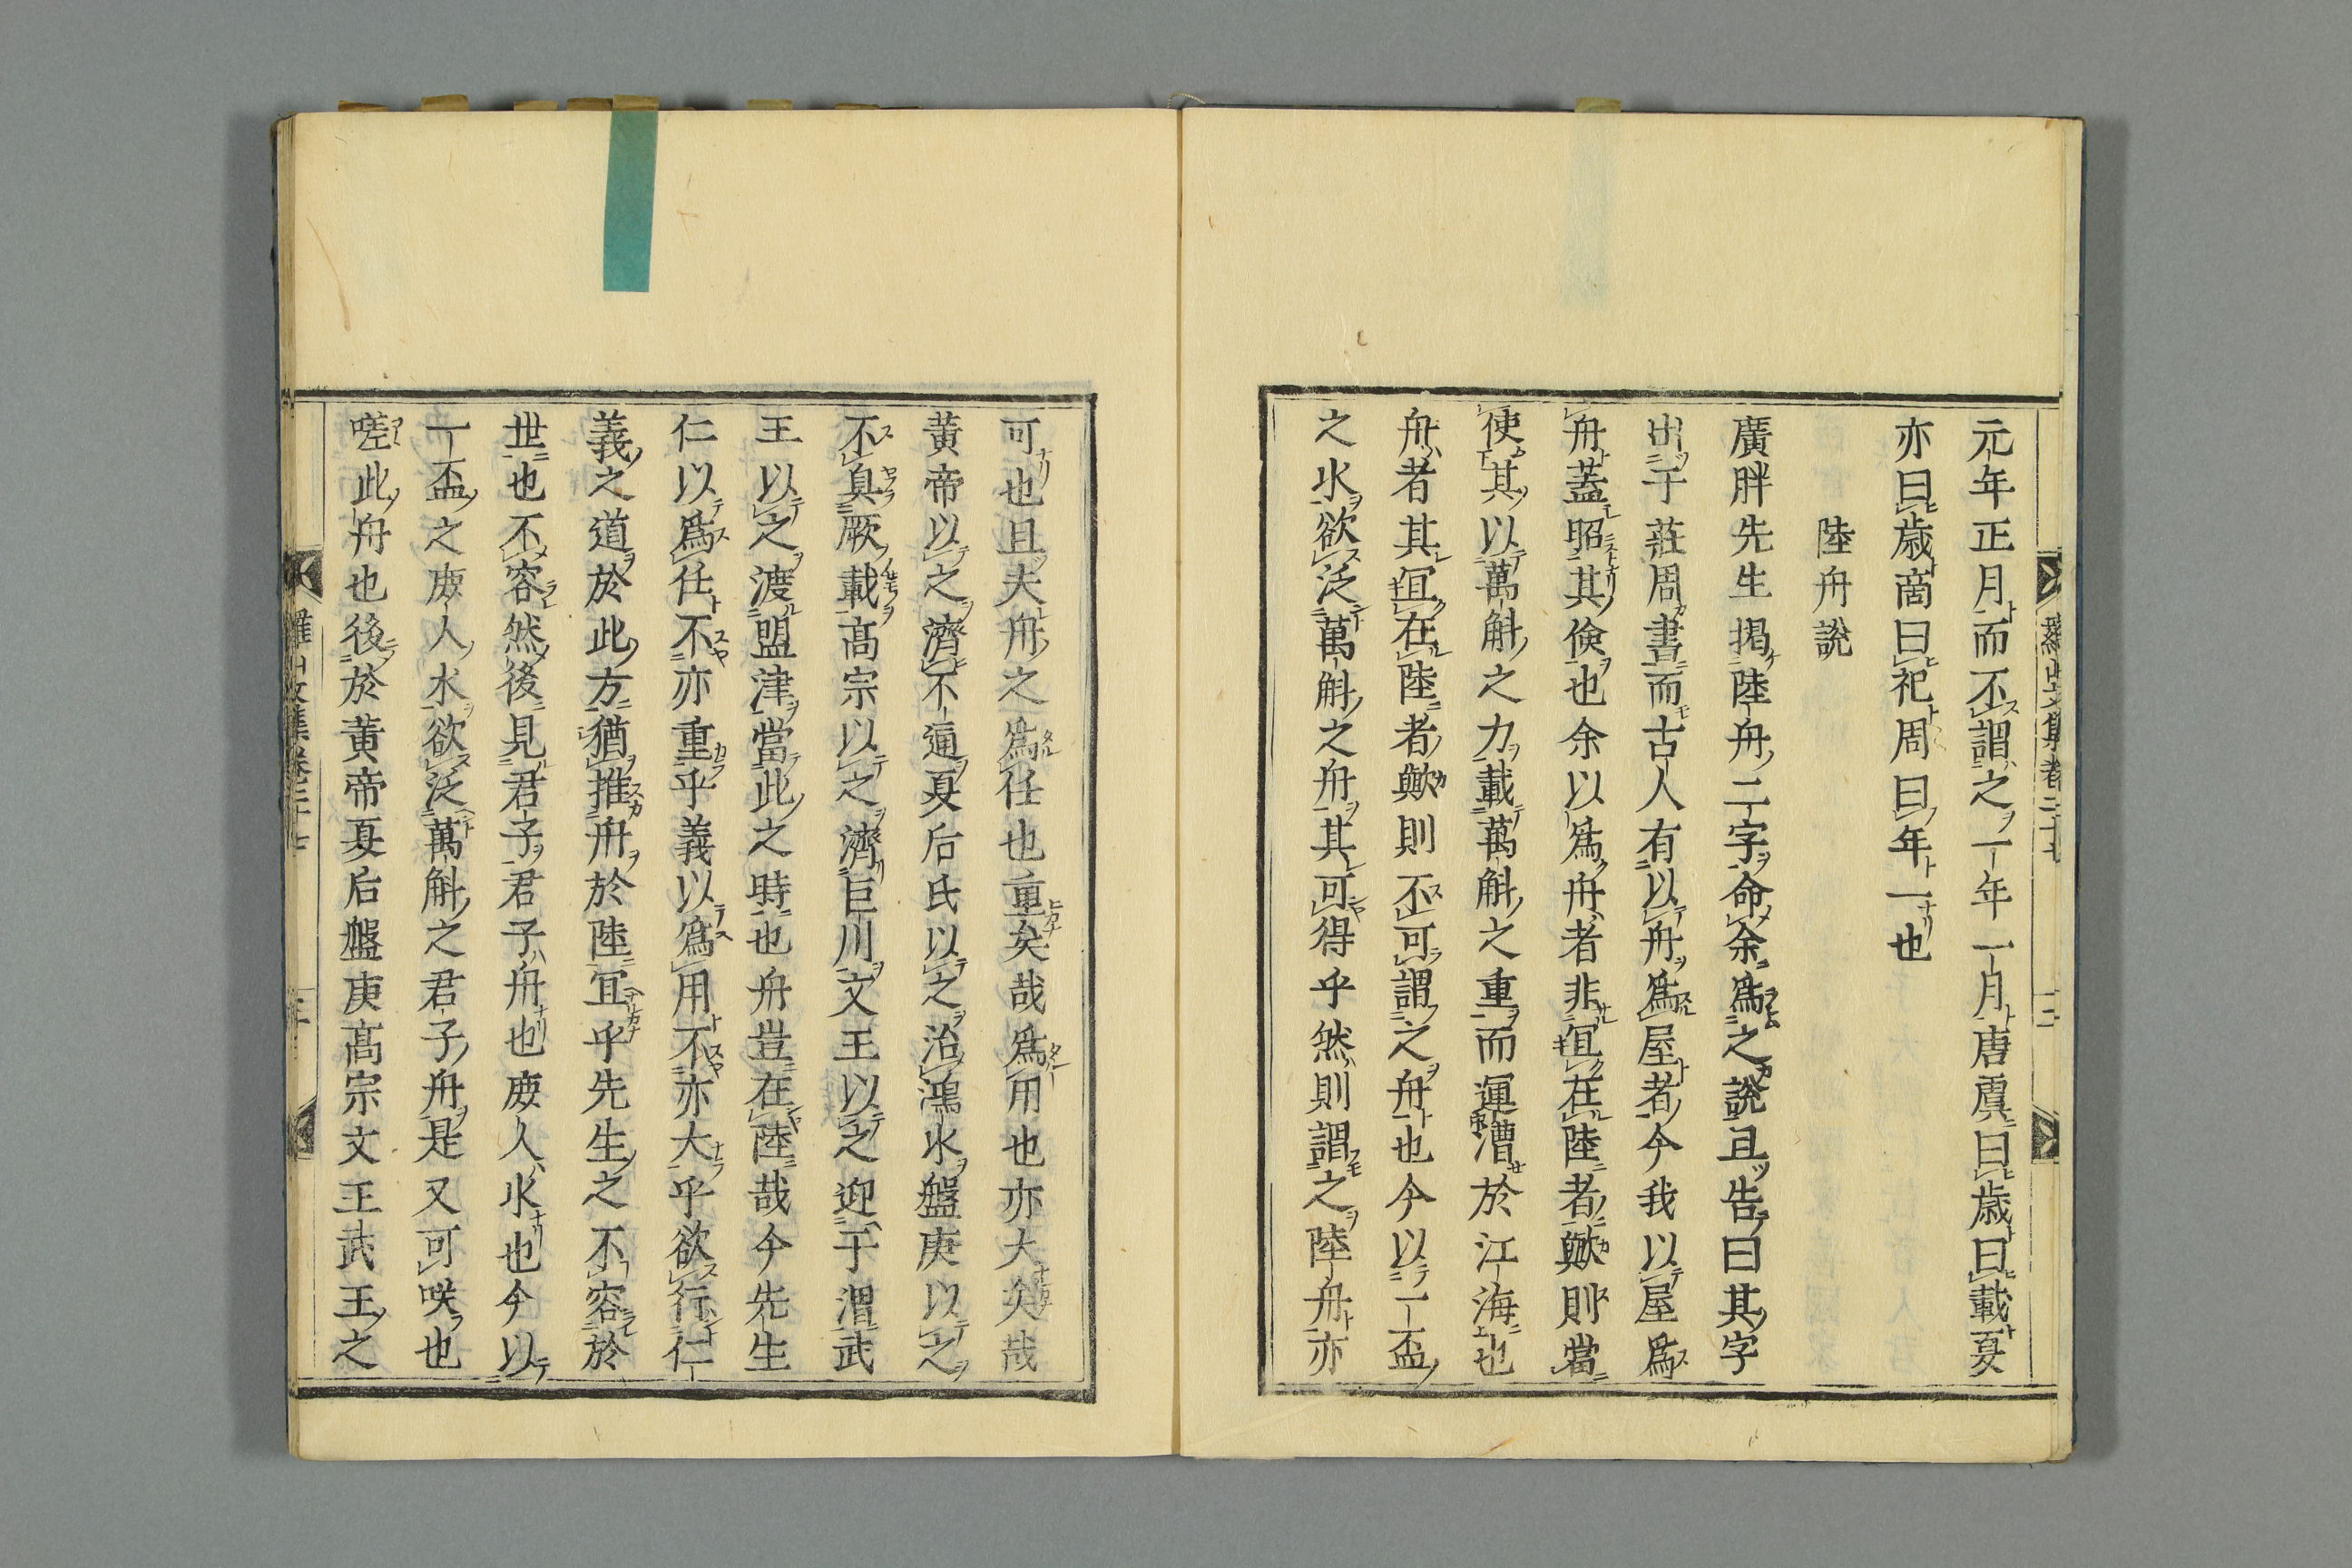 羅山文集卷二十七
元年正月而不謂之一年一月唐虞曰歳曰載夏
亦曰歳商曰祀周曰年一也
陸舟說
廣胖先生揭陸舟二字命余爲之說且告曰其字
出于莊周書而古人有以舟爲屋者今我以屋爲
舟蓋昭其儉也余以爲舟者非宜在陸者歟則當
使其以萬斛之力載萬斛之重而運漕於江海也
舟者其宜在陸者歟則不可謂之舟也今以一盃
之水欲泛萬斛之舟其可得乎然則謂之陸舟亦
可也且夫舟之爲任也重矣哉爲用也亦大矣哉
黃帝以之濟不通夏后氏以之治鴻水盤庚以之
不臭厥載高宗以之濟巨川文王以之迎于渭武
王以之渡盟津當此之時也舟豈在陸哉今先生
仁以爲任不亦重乎義以爲用不亦大乎欲行仁
義之道於此方猶推舟於陸宜乎先生之不容於
世也不容然後見君子君子舟也庶人水也今以
一盃之庶人水欲泛萬斛之君子舟是又可咲也
嗟此舟也後於黃帝夏后盤庚高宗文王武王之
羅山文集卷二十七